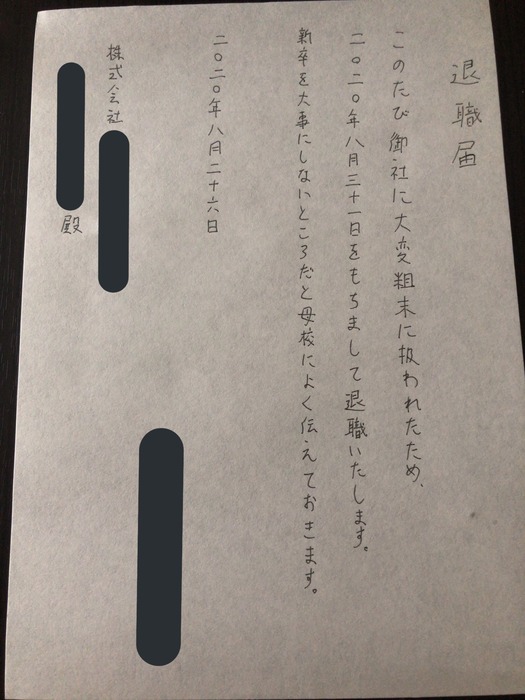 退職届
このたび御社に大変粗末に扱われたため、
二〇二〇年八月三十一日をもちまして退職いたします。
新卒を大事にしないところだと母校によく伝えておきます。
二〇二〇年八月二十六日
株式会社
殿